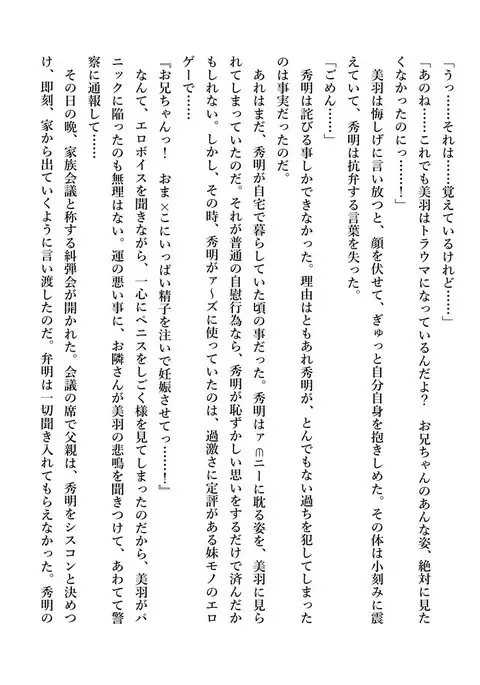 「うっ……それは……覚えているけれど……」
「あのね……これでも美羽はトラウマになっているんだよ？　お兄ちゃんのあんな姿、絶対に見た
くなかったのにっ……！」
　美羽は悔しげに言い放つと、顔を伏せて、ぎゅっと自分自身を抱きしめた。その体は小刻みに震
えていて、秀明は抗弁する言葉を失った。
「ごめん……」
　秀明は詫びる事しかできなかった。理由はともあれ秀明が、とんでもない過ちを犯してしまった
のは事実だったのだ。
　あれはまだ、秀明が自宅で暮らしていた頃の事だった。秀明はニーに耽る姿を、美羽に見ら
れてしまっていたのだ。それが普通の自慰行為なら、秀明が恥ずかしい思いをするだけで済んだか
もしれない。しかし、その時、秀明がズに使っていたのは、過激さに定評がある妹モノのエロ
ゲーで……
『お兄ちゃんっ！　おま×こにいっぱい精子を注いで妊娠させてっ……！』
　なんて、エロボイスを聞きながら、一心にペニスをしごく様を見てしまったのだから、美羽がパ
ニックに陥ったのも無理はない。運の悪い事に、お隣さんが美羽の悲鳴を聞きつけて、あわてて警
察に通報して……
　その日の晩、家族会議と称する糾弾会が開かれた。会議の席で父親は、秀明をシスコンと決めつ
け、即刻、家から出ていくように言い渡したのだ。弁明は一切聞き入れてもらえなかった。秀明の